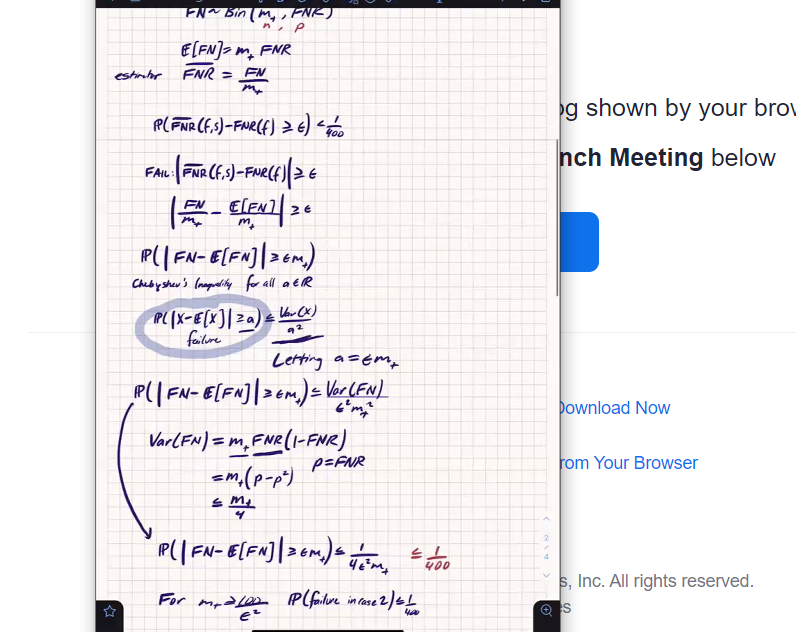 FN ~ Bin(m₊, FNR)
n, p
E[FN] = m₊ FNR
estimator F̅N̅R̅ = FN/m₊
ℙ(F̅N̅R̅(f,s) - FNR(f) ≥ ε) ≤ 1/400
FAIL: |F̅N̅R̅(f,s) - FNR(f)| ≥ ε
|FN/m₊ - E[FN]/m₊| ≥ ε
ℙ(|FN - E[FN]| ≥ εm₊)
Chebyshev's Inequality for all a ∈ ℝ
ℙ(|X - E[X]| ≥ a) ≤ Var(X)/a²
failure
Letting a = εm₊
ℙ(|FN - E[FN]| ≥ εm₊) ≤ Var(FN)/ε²m₊²
Var(FN) = m₊ FNR(1-FNR)
p = FNR
= m₊(p - p²)
≤ m₊/4
ℙ(|FN - E[FN]| ≥ εm₊) ≤ 1/4ε²m₊ ≤ 1/400
For m₊ ≥ 100/ε² ℙ(failure in case 2) ≤ 1/400
2
/
4
og shown by your brow
nch Meeting below
Download Now
rom Your Browser
s, Inc. All rights reserved.
es